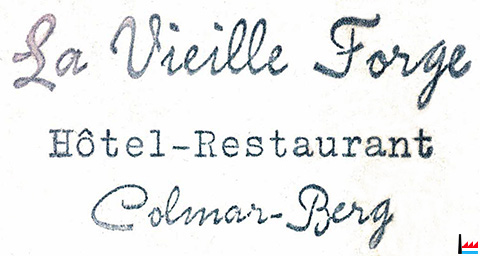 La Vieille Forge
Hôtel-Restaurant
Colmar-Berg